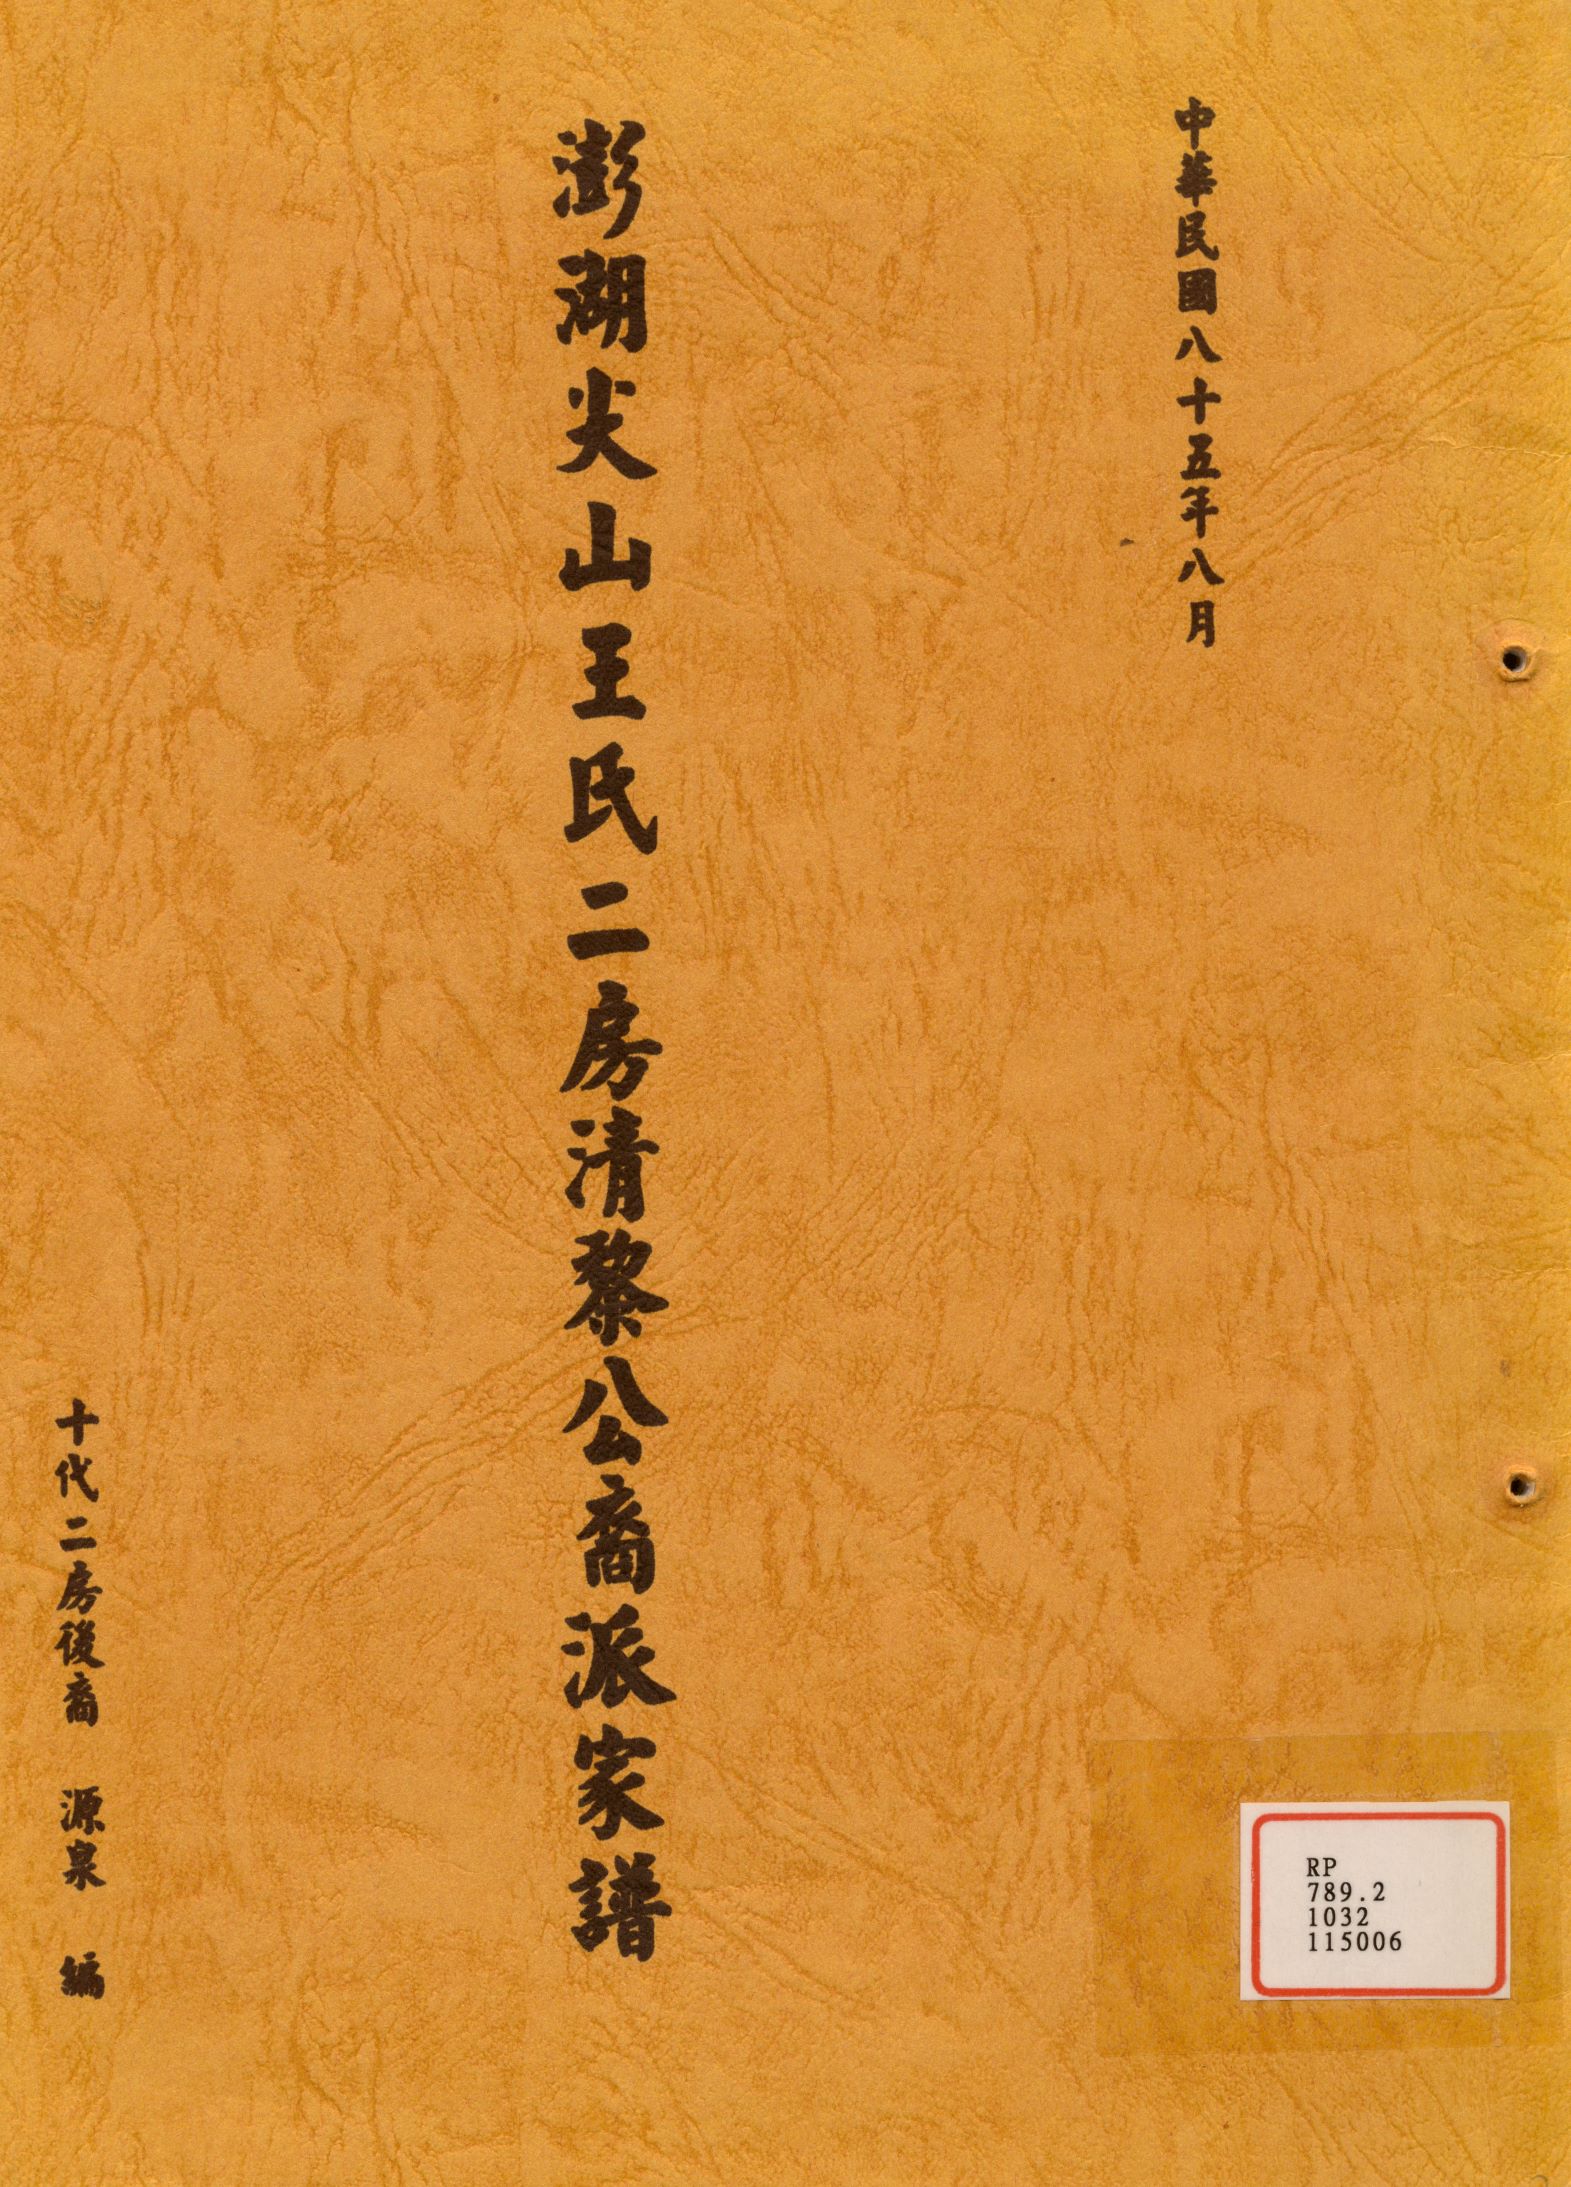 中華民國八十五年八月
澎湖尖山王氏二房清黎公裔派家譜
十代二房後裔　源泉　編
RP
789.2
1032
115006